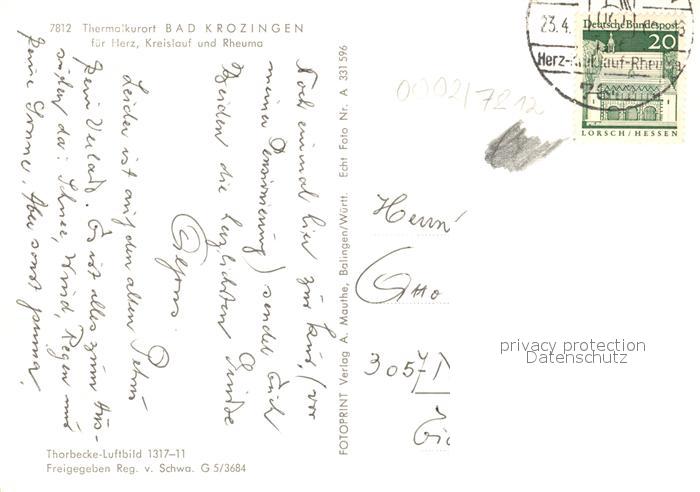 7812 Thermalkurort BAD KROZINGEN
für Herz, Kreislauf und Rheuma
Noch einmal hier zur Kur, (vor
meiner Pensionierung) sendet Euch
Beiden die herzlichsten Grüße
Alfons.
Leider ist auf den alten Petrus
kein Verlaß. Es ist alles zum Aus-
suchen da: Schnee, Wind, Regen und
keine Sonne. Aber sonst prima.
Thorbecke-Luftbild 1317–11
Freigegeben Reg. v. Schwa. G 5/3684
FOTOPRINT Verlag A. Mauthe, Balingen/Württ. Echt Foto Nr. A 331 596
0002/7212
23.4.
Herz-Kreislauf-Rheuma
Deutsche Bundespost
20
LORSCH/HESSEN
Herrn
Otto
3057
privacy protection
Datenschutz